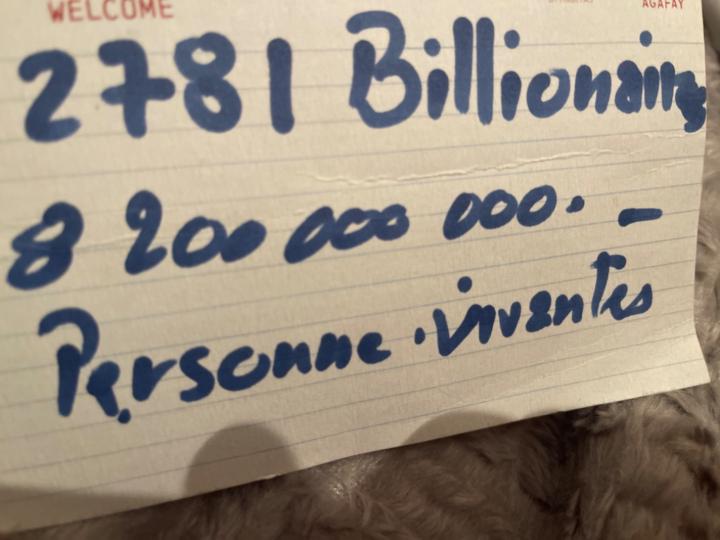 WELCOME
AGAFAY
2781 Billionaires
8 200 000 000. -
Personne . vivantes